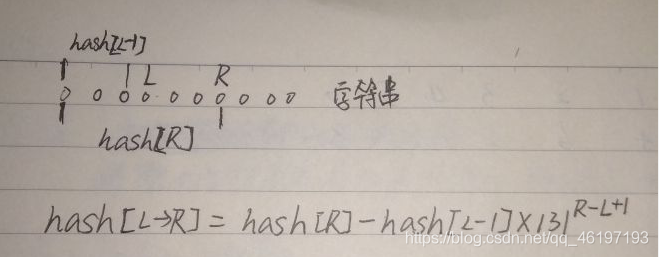 hash[L-1]
L R
字符串
hash[R]
hash[L→R] = hash[R] - hash[L-1] × 131^{R-L+1}
https://blog.csdn.net/qq_46197193